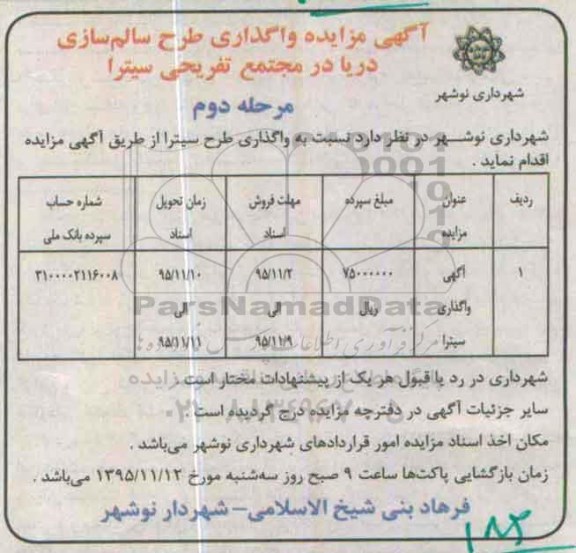 آگهی مزایده واگذاری طرح سالم‌سازی
دریا در مجتمع تفریحی سیترا
شهرداری نوشهر
مرحله دوم
شهرداری نوشهر در نظر دارد نسبت به واگذاری طرح سیترا از طریق آگهی مزایده
اقدام نماید .
ردیف عنوان مزایده مبلغ سپرده مهلت فروش اسناد زمان تحویل اسناد شماره حساب سپرده بانک ملی
۱ آگهی واگذاری سیترا ۷۵۰۰۰۰۰۰ ریال ۹۵/۱۱/۲ الی ۹۵/۱۱/۹ ۹۵/۱۱/۱۰ الی ۹۵/۱۱/۱۱ ۳۱۰۰۰۰۲۱۱۶۰۰۸
ParsNamadData
شهرداری در رد یا قبول هر یک از پیشنهادات مختار است .
سایر جزئیات آگهی در دفترچه مزایده درج گردیده است .
مکان اخذ اسناد مزایده امور قراردادهای شهرداری نوشهر می‌باشد .
زمان بازگشایی پاکت‌ها ساعت ۹ صبح روز سه‌شنبه مورخ ۱۳۹۵/۱۱/۱۲ می‌باشد .
فرهاد بنی شیخ الاسلامی– شهردار نوشهر